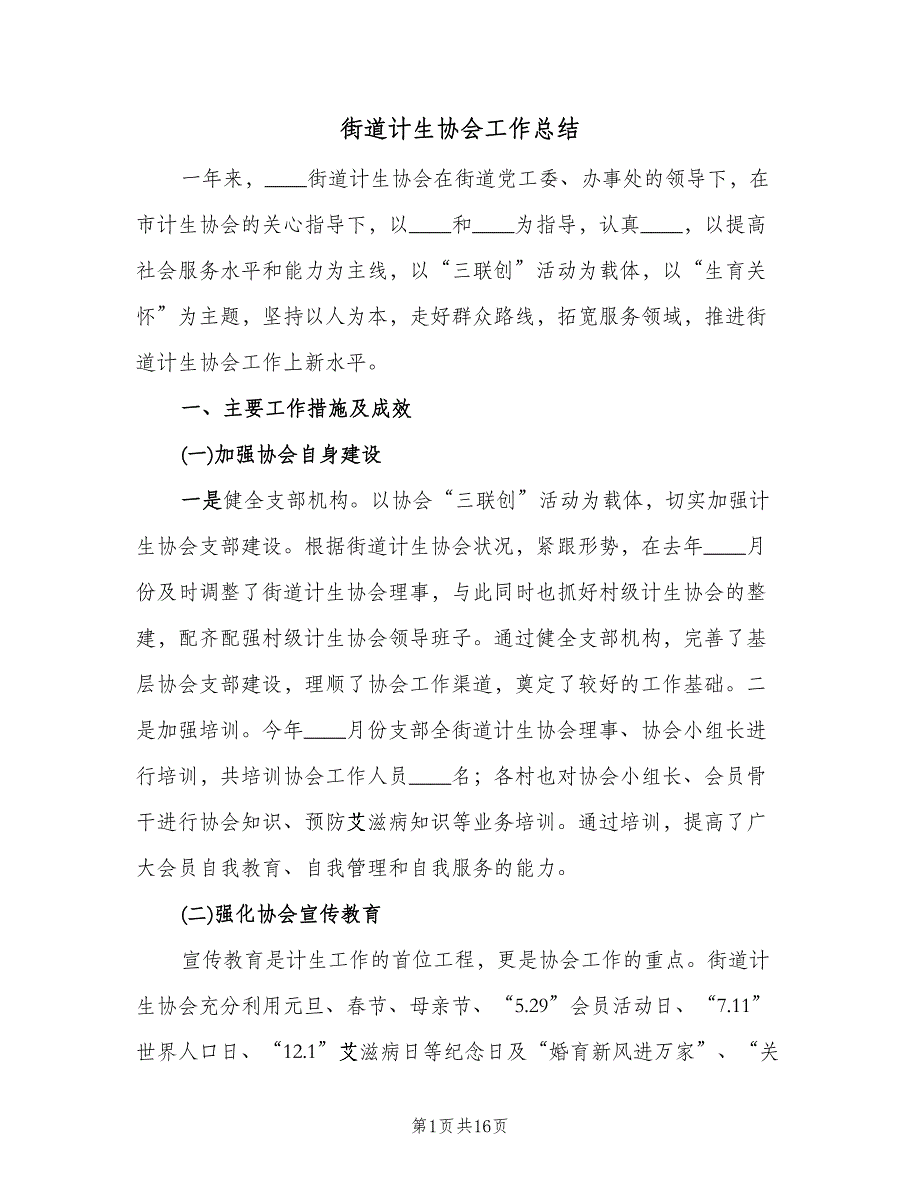 街道计生协会工作总结
一年来，____街道计生协会在街道党工委、办事处的领导下，在
市计生协会的关心指导下，以____和____为指导，认真____，以提高
社会服务水平和能力为主线，以“三联创”活动为载体，以“生育关
怀”为主题，坚持以人为本，走好群众路线，拓宽服务领域，推进街
道计生协会工作上新水平。
一、主要工作措施及成效
(一)加强协会自身建设
一是健全支部机构。以协会“三联创”活动为载体，切实加强计
生协会支部建设。根据街道计生协会状况，紧跟形势，在去年____月
份及时调整了街道计生协会理事，与此同时也抓好村级计生协会的整
建，配齐配强村级计生协会领导班子。通过健全支部机构，完善了基
层协会支部建设，理顺了协会工作渠道，奠定了较好的工作基础。二
是加强培训。今年____月份支部全街道计生协会理事、协会小组长进
行培训，共培训协会工作人员____名；各村也对协会小组长、会员骨
干进行协会知识、预防艾滋病知识等业务培训。通过培训，提高了广
大会员自我教育、自我管理和自我服务的能力。
(二)强化协会宣传教育
宣传教育是计生工作的首位工程，更是协会工作的重点。街道计
生协会充分利用元旦、春节、母亲节、“5.29”会员活动日、“7.11”
世界人口日、“12.1”艾滋病日等纪念日及“婚育新风进万家”、“关
第1页共16页